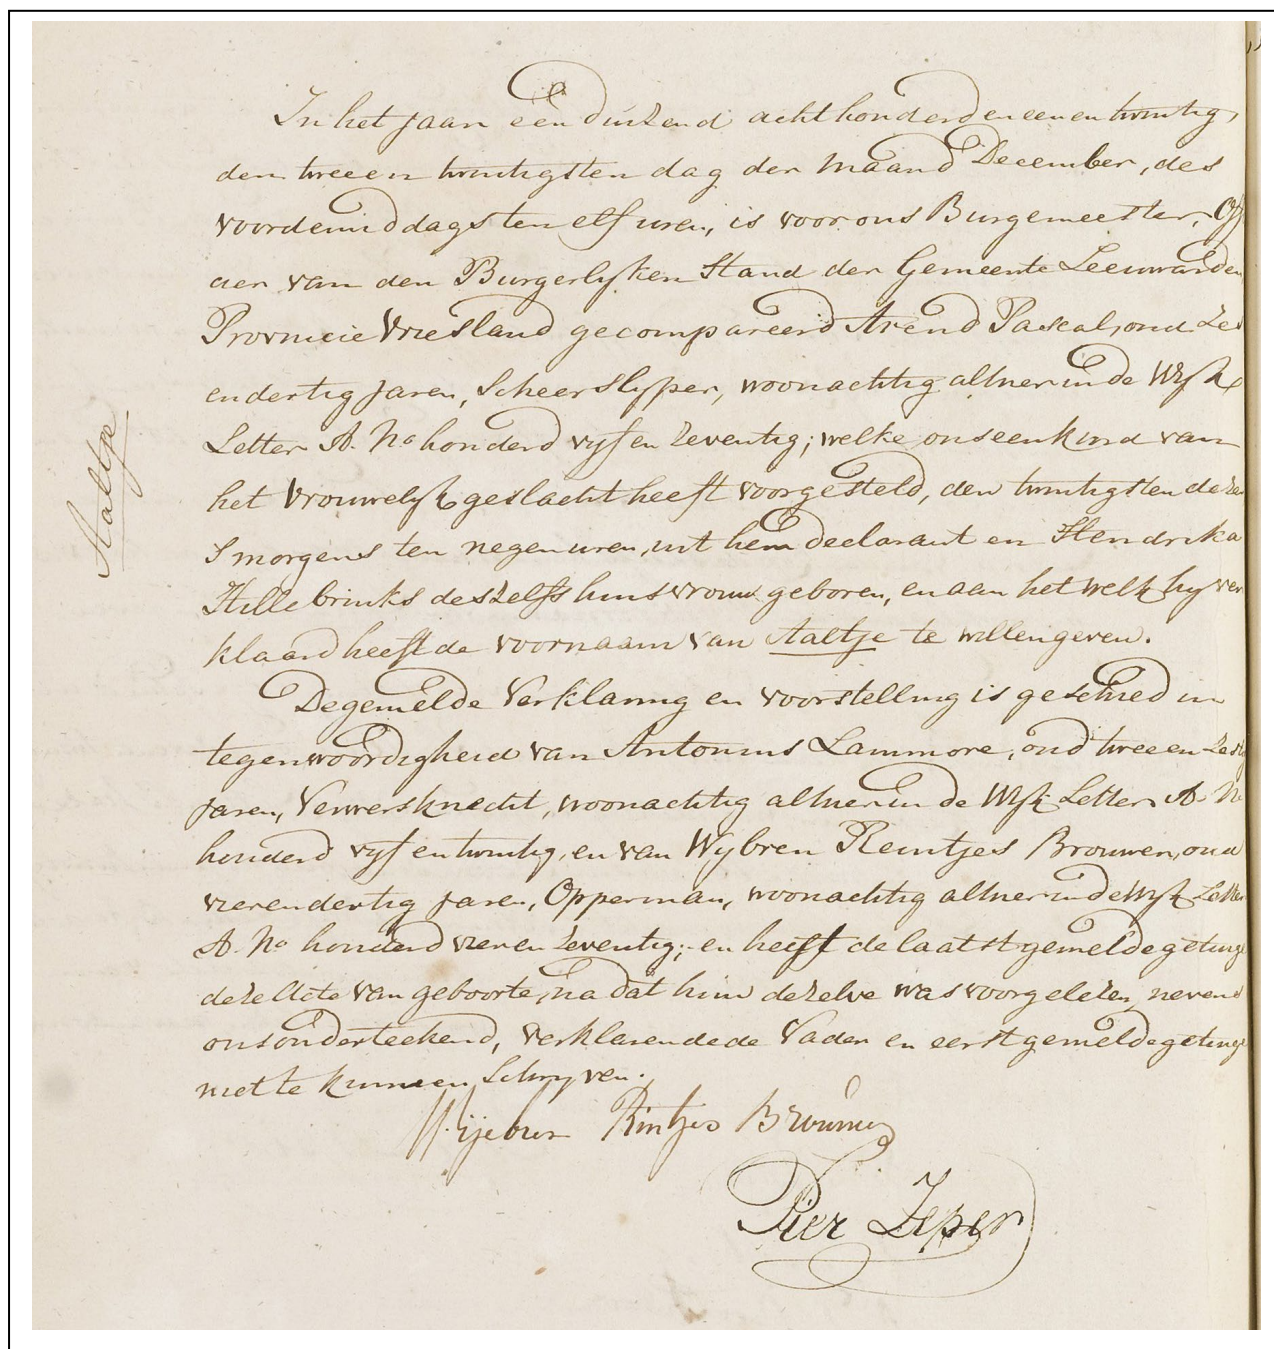 In het Jaar een duizend achthonderd en eenen twintig,
den tweeen twintigsten dag der Maand December, des
voordemiddags ten elf uren, is voor ons Burgemeester, Off
aer van den Burgerlyken Stand der Gemeente Leeuwarden
Provincie Vriesland gecompareerd Arend Pascal, oud Zes
en dertig Jaren, Scheerslyper, woonachtig alhier in de Wyk
Letter A. No honderd vyf en Zeventig; welke ons een kind van
het Vrouwelyk geslacht heeft voorgesteld, den twintigsten dezer
Smorgens ten negen uren, uit hem declarant en Hendrika
Hillebrinks deszelfs huisvrouw geboren, en aan het welk hy ver
klaard heeft de voornaam van Aaltje te willen geven.
De gemelde Verklaring en voorstelling is geschied in
tegenwoordigheid van Antonius Lammore, oud twee en Zestig
Jaren, Ververs knecht, woonachtig alhier in de Wyk Letter A. No
honderd vyf en twintig, en van Wybren Reintjes Brouwer, oud
vierendertig Jaren, Opperman, woonachtig alhier in de Wyk Letter
A. No honderd vieren Zeventig; en heeft de laatstgemelde getuige
deze Acte van geboorte, na dat hun dezelve was voorgelezen, nevens
ons onderteekend, verklarende de Vader en eerstgemelde getuige
niet te kunnen Schryven.
Wijebren Rintjes Brouwer
Pier Zeper
Aaltje